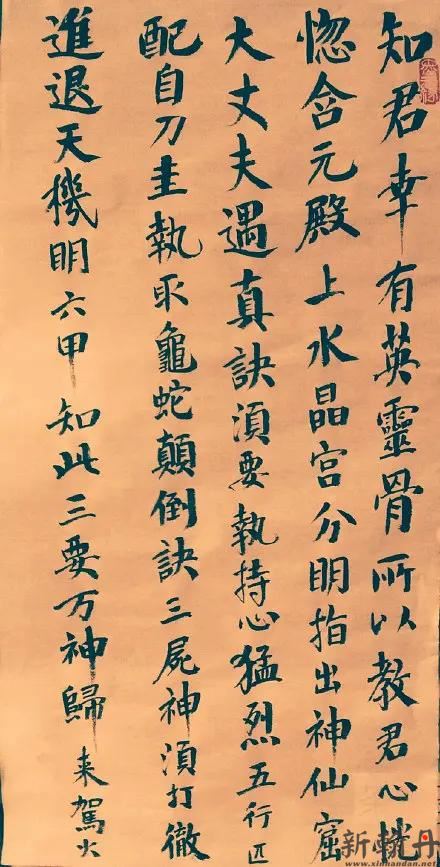 知君幸有英靈骨所以教君心恍
惚含元殿上水晶宮分明指出神仙窟
大丈夫遇真訣須要執持心猛烈五行匹
配自刀圭執取龜蛇顛倒訣三屍神須打徹
進退天機明六甲知此三要万神歸来駕火
新韓丹
www.xinhandan.net